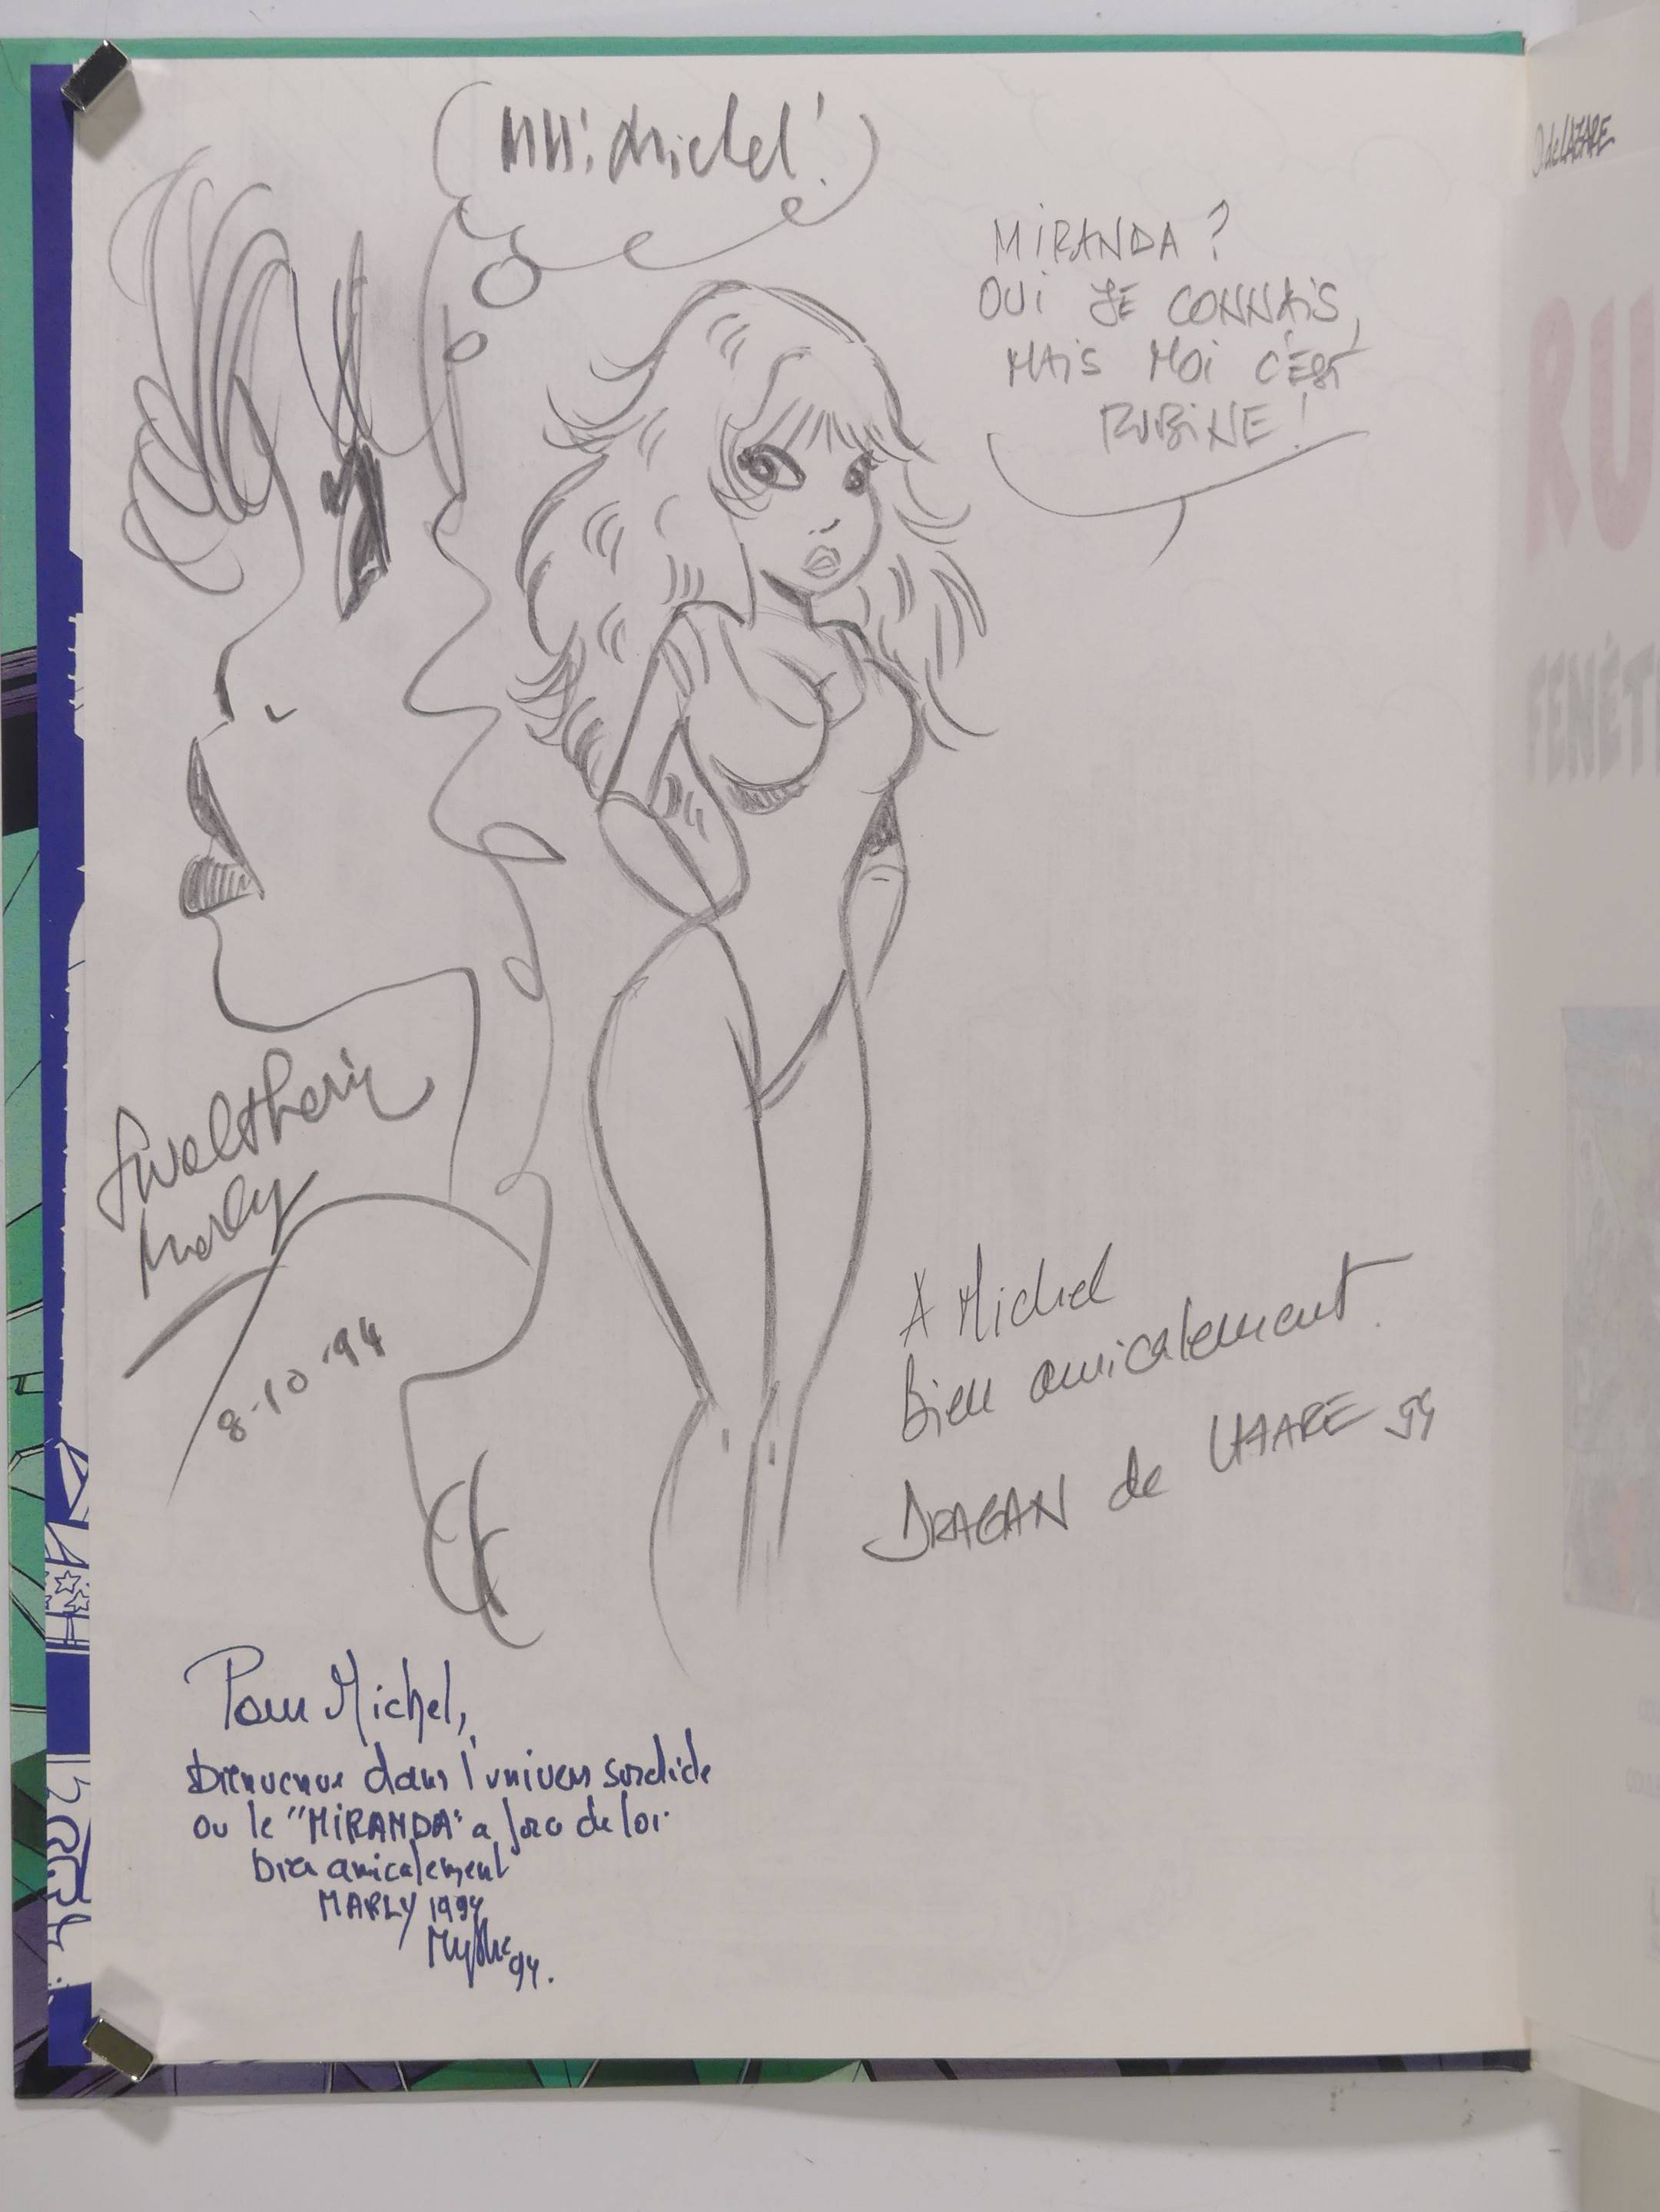 MM! Michel!
MIRANDA ?
OUI JE CONNAIS,
MAIS MOI C'EST
RUBINE !
de LAZARE
RU
FENÊT
Walthéry
Marly
8-10-94
A Michel
Bien amicalement
DRAGAN de LAZARE 94
Pour Michel,
bienvenue dans l'univers sordide
ou le "MIRANDA" a force de loi.
bien amicalement
MARLY 1994
Mythic 94.